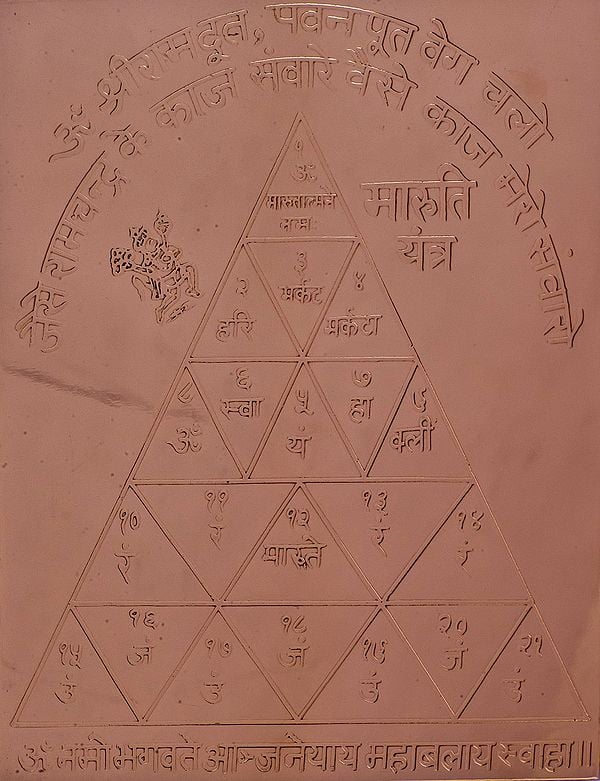 ॐ श्रीरामदूत, पवन पूत वेग चलो
जैसे रामचन्द्र के काज संवारे वैसे काज मेरो सवारो
मारुति
यंत्र
१
ॐ
मारुतात्मने
नमः
२
हरि
३
मर्कट
४
मर्कटा
८
ॐ
६
स्वा
५
यं
७
हा
९
क्लीं
१०
रं
११
रं
१२
मारुते
१३
रं
१४
रं
१५
उं
१६
जं
१७
उं
१८
जं
१९
उं
२०
जं
२१
उं
ॐ नमो भगवते आञ्जनेयाय महाबलाय स्वाहा॥